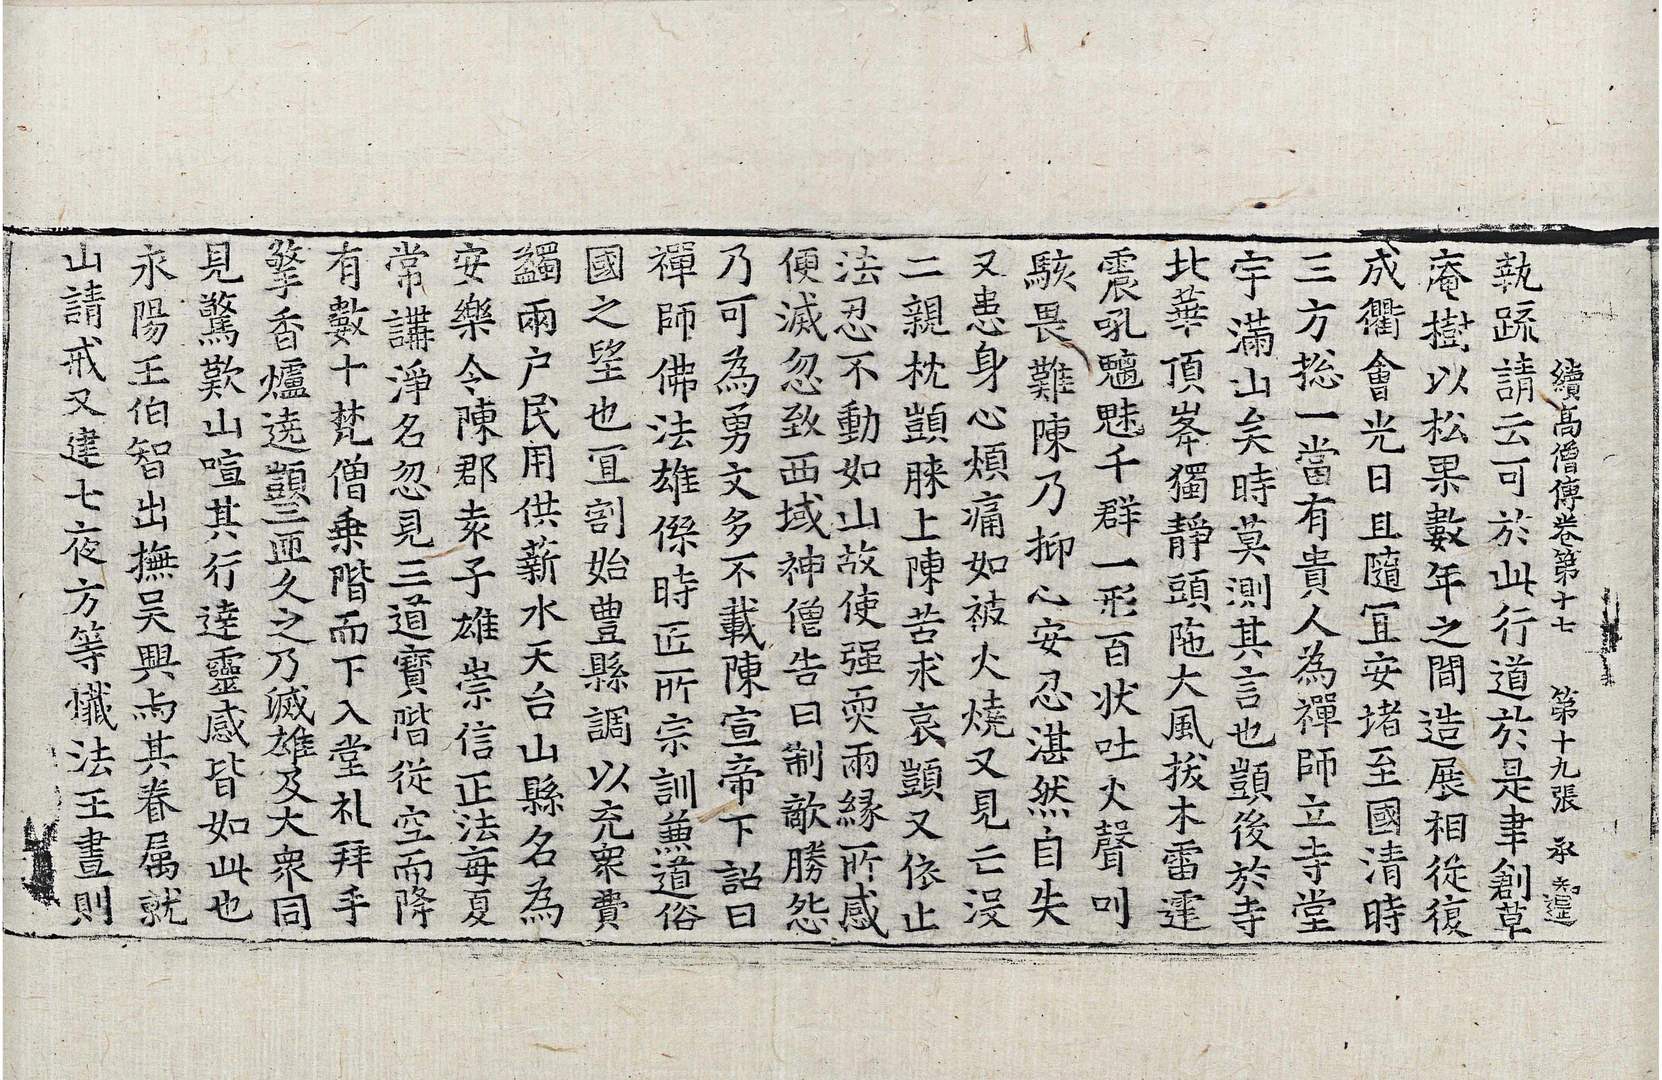 續高僧傳卷第十七 第十九張 承
執疏請云可於此行道於是聿創草
庵樹以松果數年之間造展相從復
成衢會光曰且隨宜安堵至國清時
三方揔一當有貴人為禪師立寺堂
宇滿山矣時莫測其言也顗後於寺
北華頂峯獨靜頭陁大風拔木雷霆
震吼魑魅千群一形百狀吐火聲叫
駭畏難陳乃抑心安忍湛然自失
又患身心煩痛如被火燒又見亡沒
二親枕顗膝上陳苦求哀顗又依止
法忍不動如山故使强耎兩緣所感
便滅忽致西域神僧告曰制敵勝怨
乃可為勇文多不載陳宣帝下詔曰
禪師佛法雄傑時匠所宗訓兼道俗
國之望也宜割始豊縣調以充衆費
蠲兩户民用供薪水天台山縣名為
安樂令陳郡袁子雄崇信正法每夏
常講淨名忽見三道寶階從空而降
有數十梵僧乗階而下入堂礼拜手
擎香爐遶顗三匝久之乃滅雄及大衆同
見驚歎山喧其行達靈感皆如此也
永陽王伯智出撫吴興与其眷属就
山請戒又建七夜方等懺法王晝則